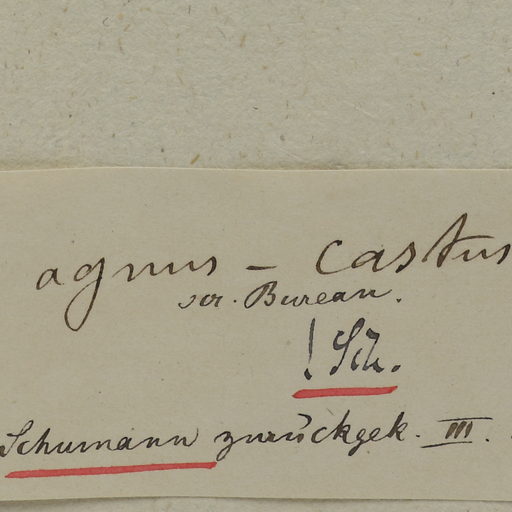 agnus - castus
scr. Bureau.
! Sch.
Schumann zurückgek. III.